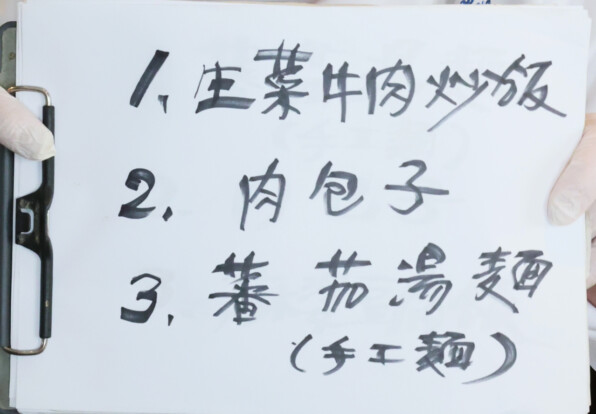 1. 生菜牛肉炒飯
2. 肉包子
3. 蕃茄湯麵
(手工麵)